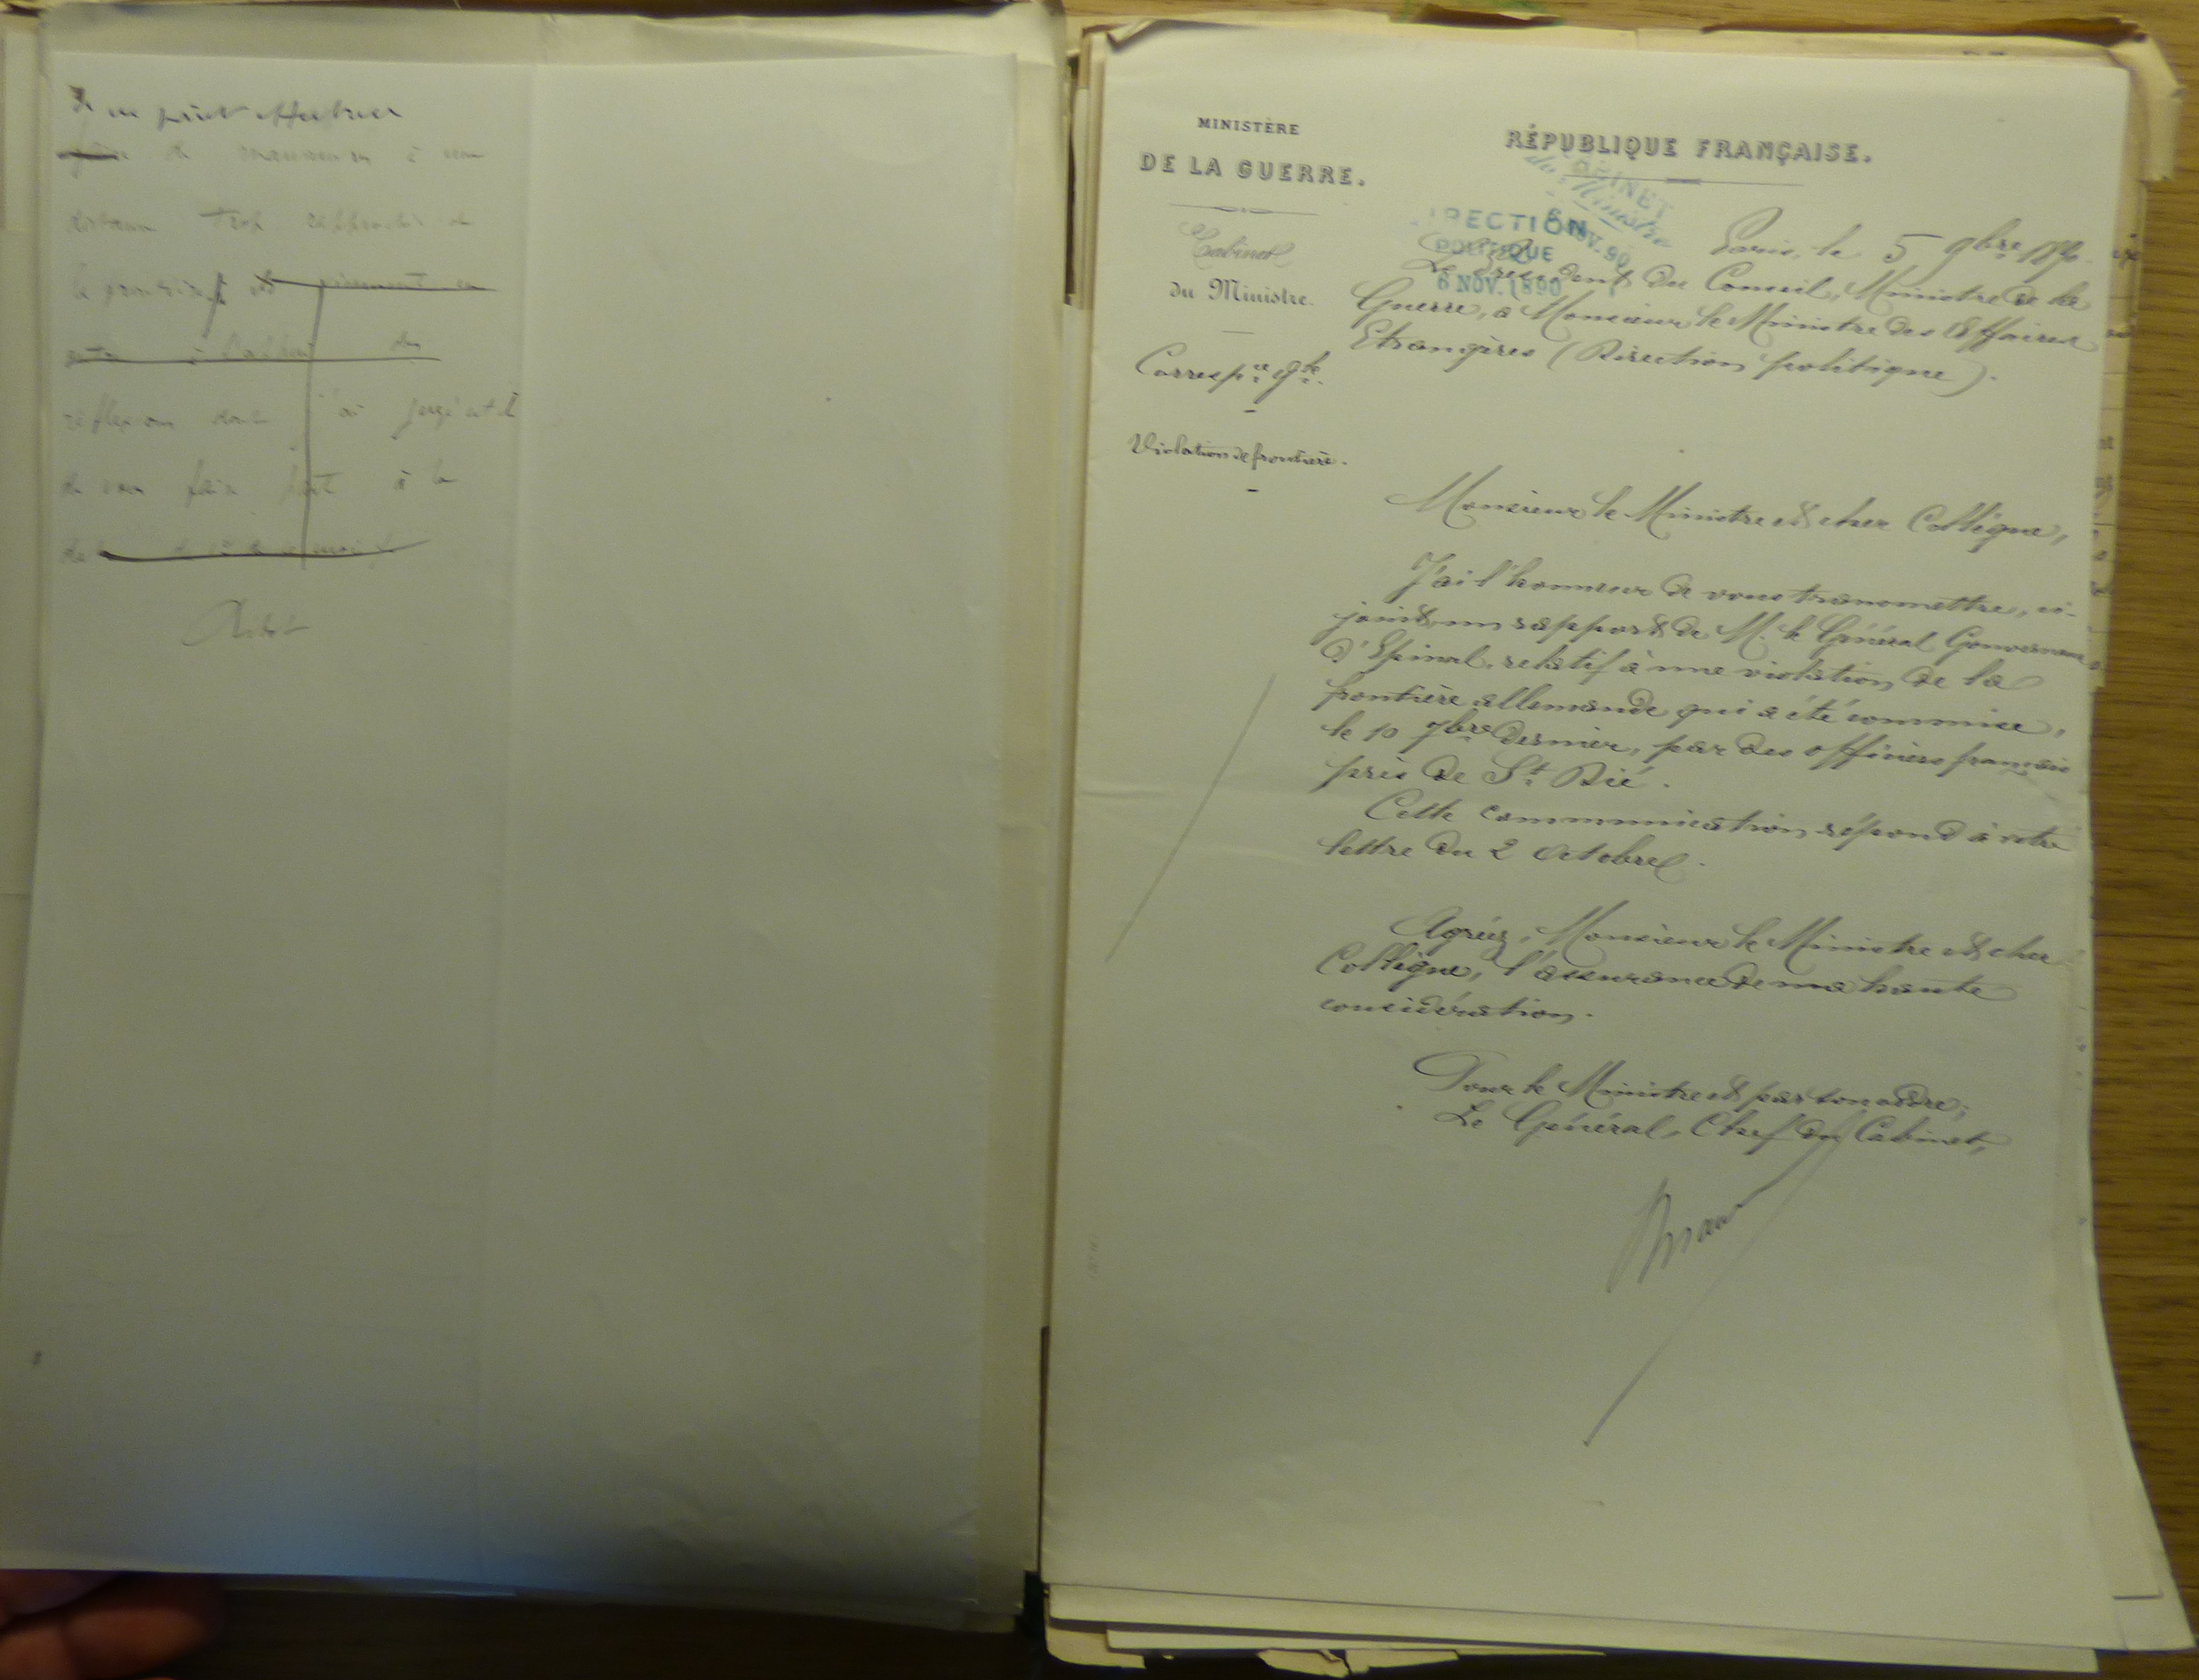 de ne point effectuer
de manœuvres à une
distance trop rapprochée de
la frontière et
à
réflexions dont j'ai jugé utile
de vous faire part à la
Ribot
MINISTÈRE
DE LA GUERRE.
Cabinet
du Ministre.
Corresp.ce g.le
Violation de frontière.
RÉPUBLIQUE FRANÇAISE.
CABINET
du Ministre
6 NOV. 90
DIRECTION
POLITIQUE
6 NOV. 1890
Paris, le 5 9bre 1890.
Le Président du Conseil, Ministre de la
Guerre, à Monsieur le Ministre des Affaires
Etrangères (Direction politique).
Monsieur le Ministre et cher Collègue,
J'ai l'honneur de vous transmettre, ci-
joint, un rapport de M. le Général Gouverneur
d'Epinal, relatif à une violation de la
frontière allemande qui a été commise,
le 10 7bre dernier, par des officiers français
près de St. Dié.
Cette communication répond à votre
lettre du 2 Octobre.
Agréez, Monsieur le Ministre et cher
Collègue, l'assurance de ma haute
considération.
Pour le Ministre et par son ordre,
Le Général, Chef du Cabinet,